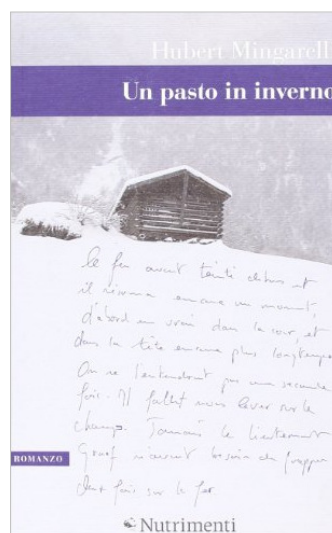 Hubert Mingarell
Un pasto in inverno
le fer avait tinté dehors et
il résonna encore un moment,
d'abord en vrai dans la cour, et
dans la tête encore plus longtemps.
On ne l'entendrait pas une seconde
fois. Il fallut nous lever sur le
champ. Jamais le lieutenant
Graaf n'avait besoin de frapper
deux fois sur le fer
ROMANZO
Nutrimenti